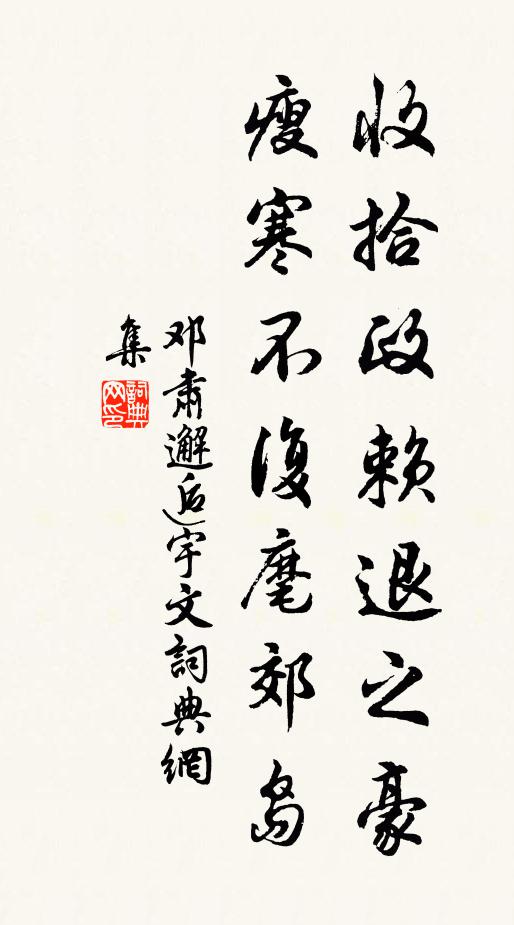 收拾政赖退之豪
瘦寒不復麾郊岛
邓肃邂逅宇文詞典網
集
詞典
网印